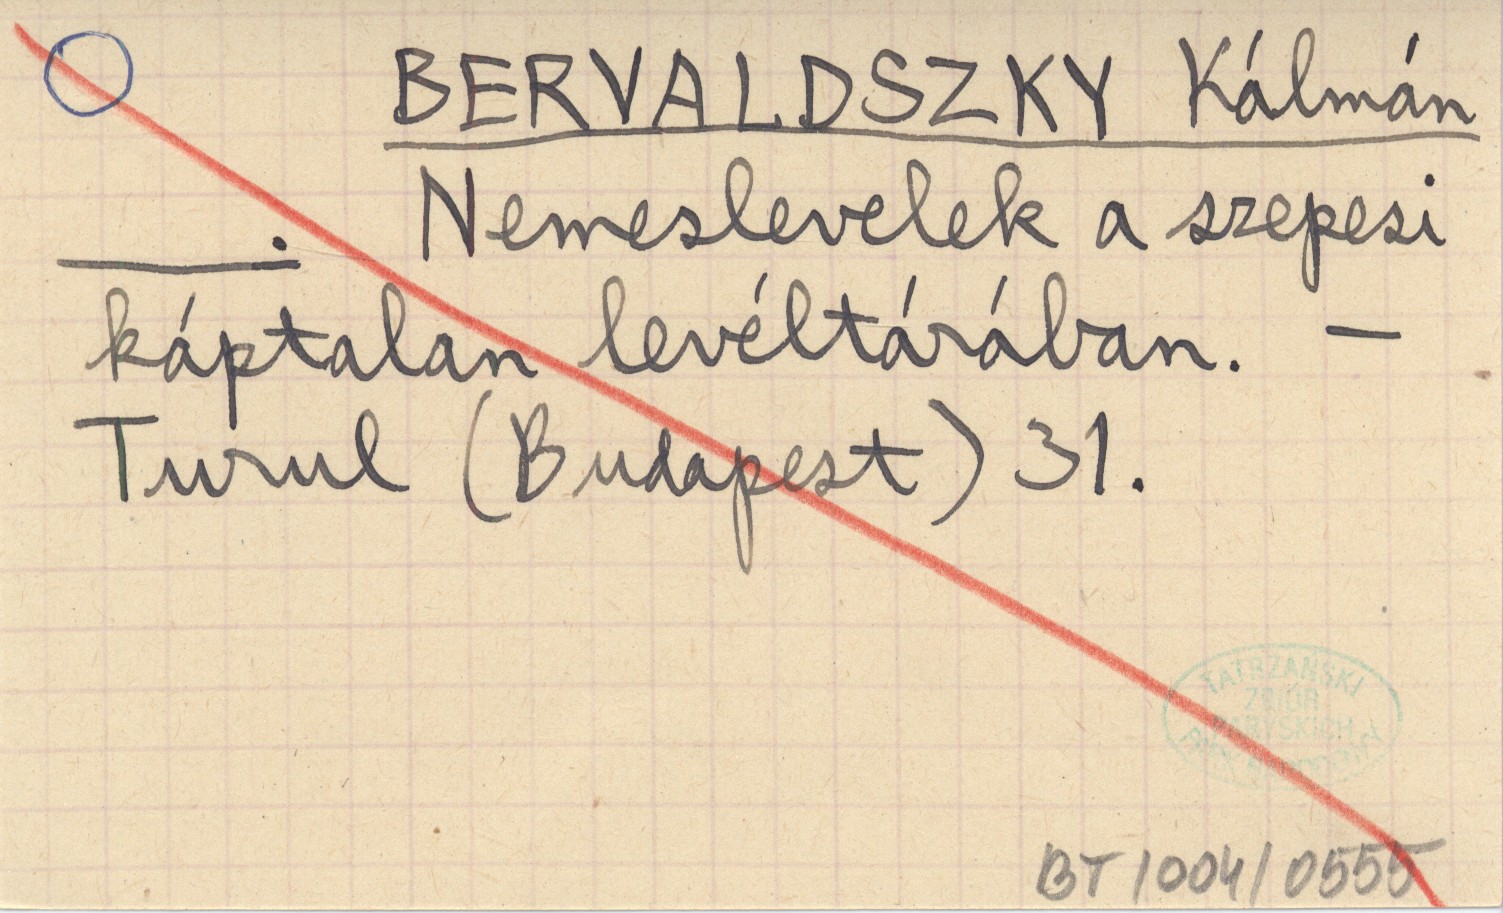 BERVALDSZKY Kálmán
____. Nemeslevelek a szepesi
káptalan levéltárában. —
Turul (Budapest) 31.
TATRZAŃSKI
ZBIÓR
PARYSKICH
BT/004/0555